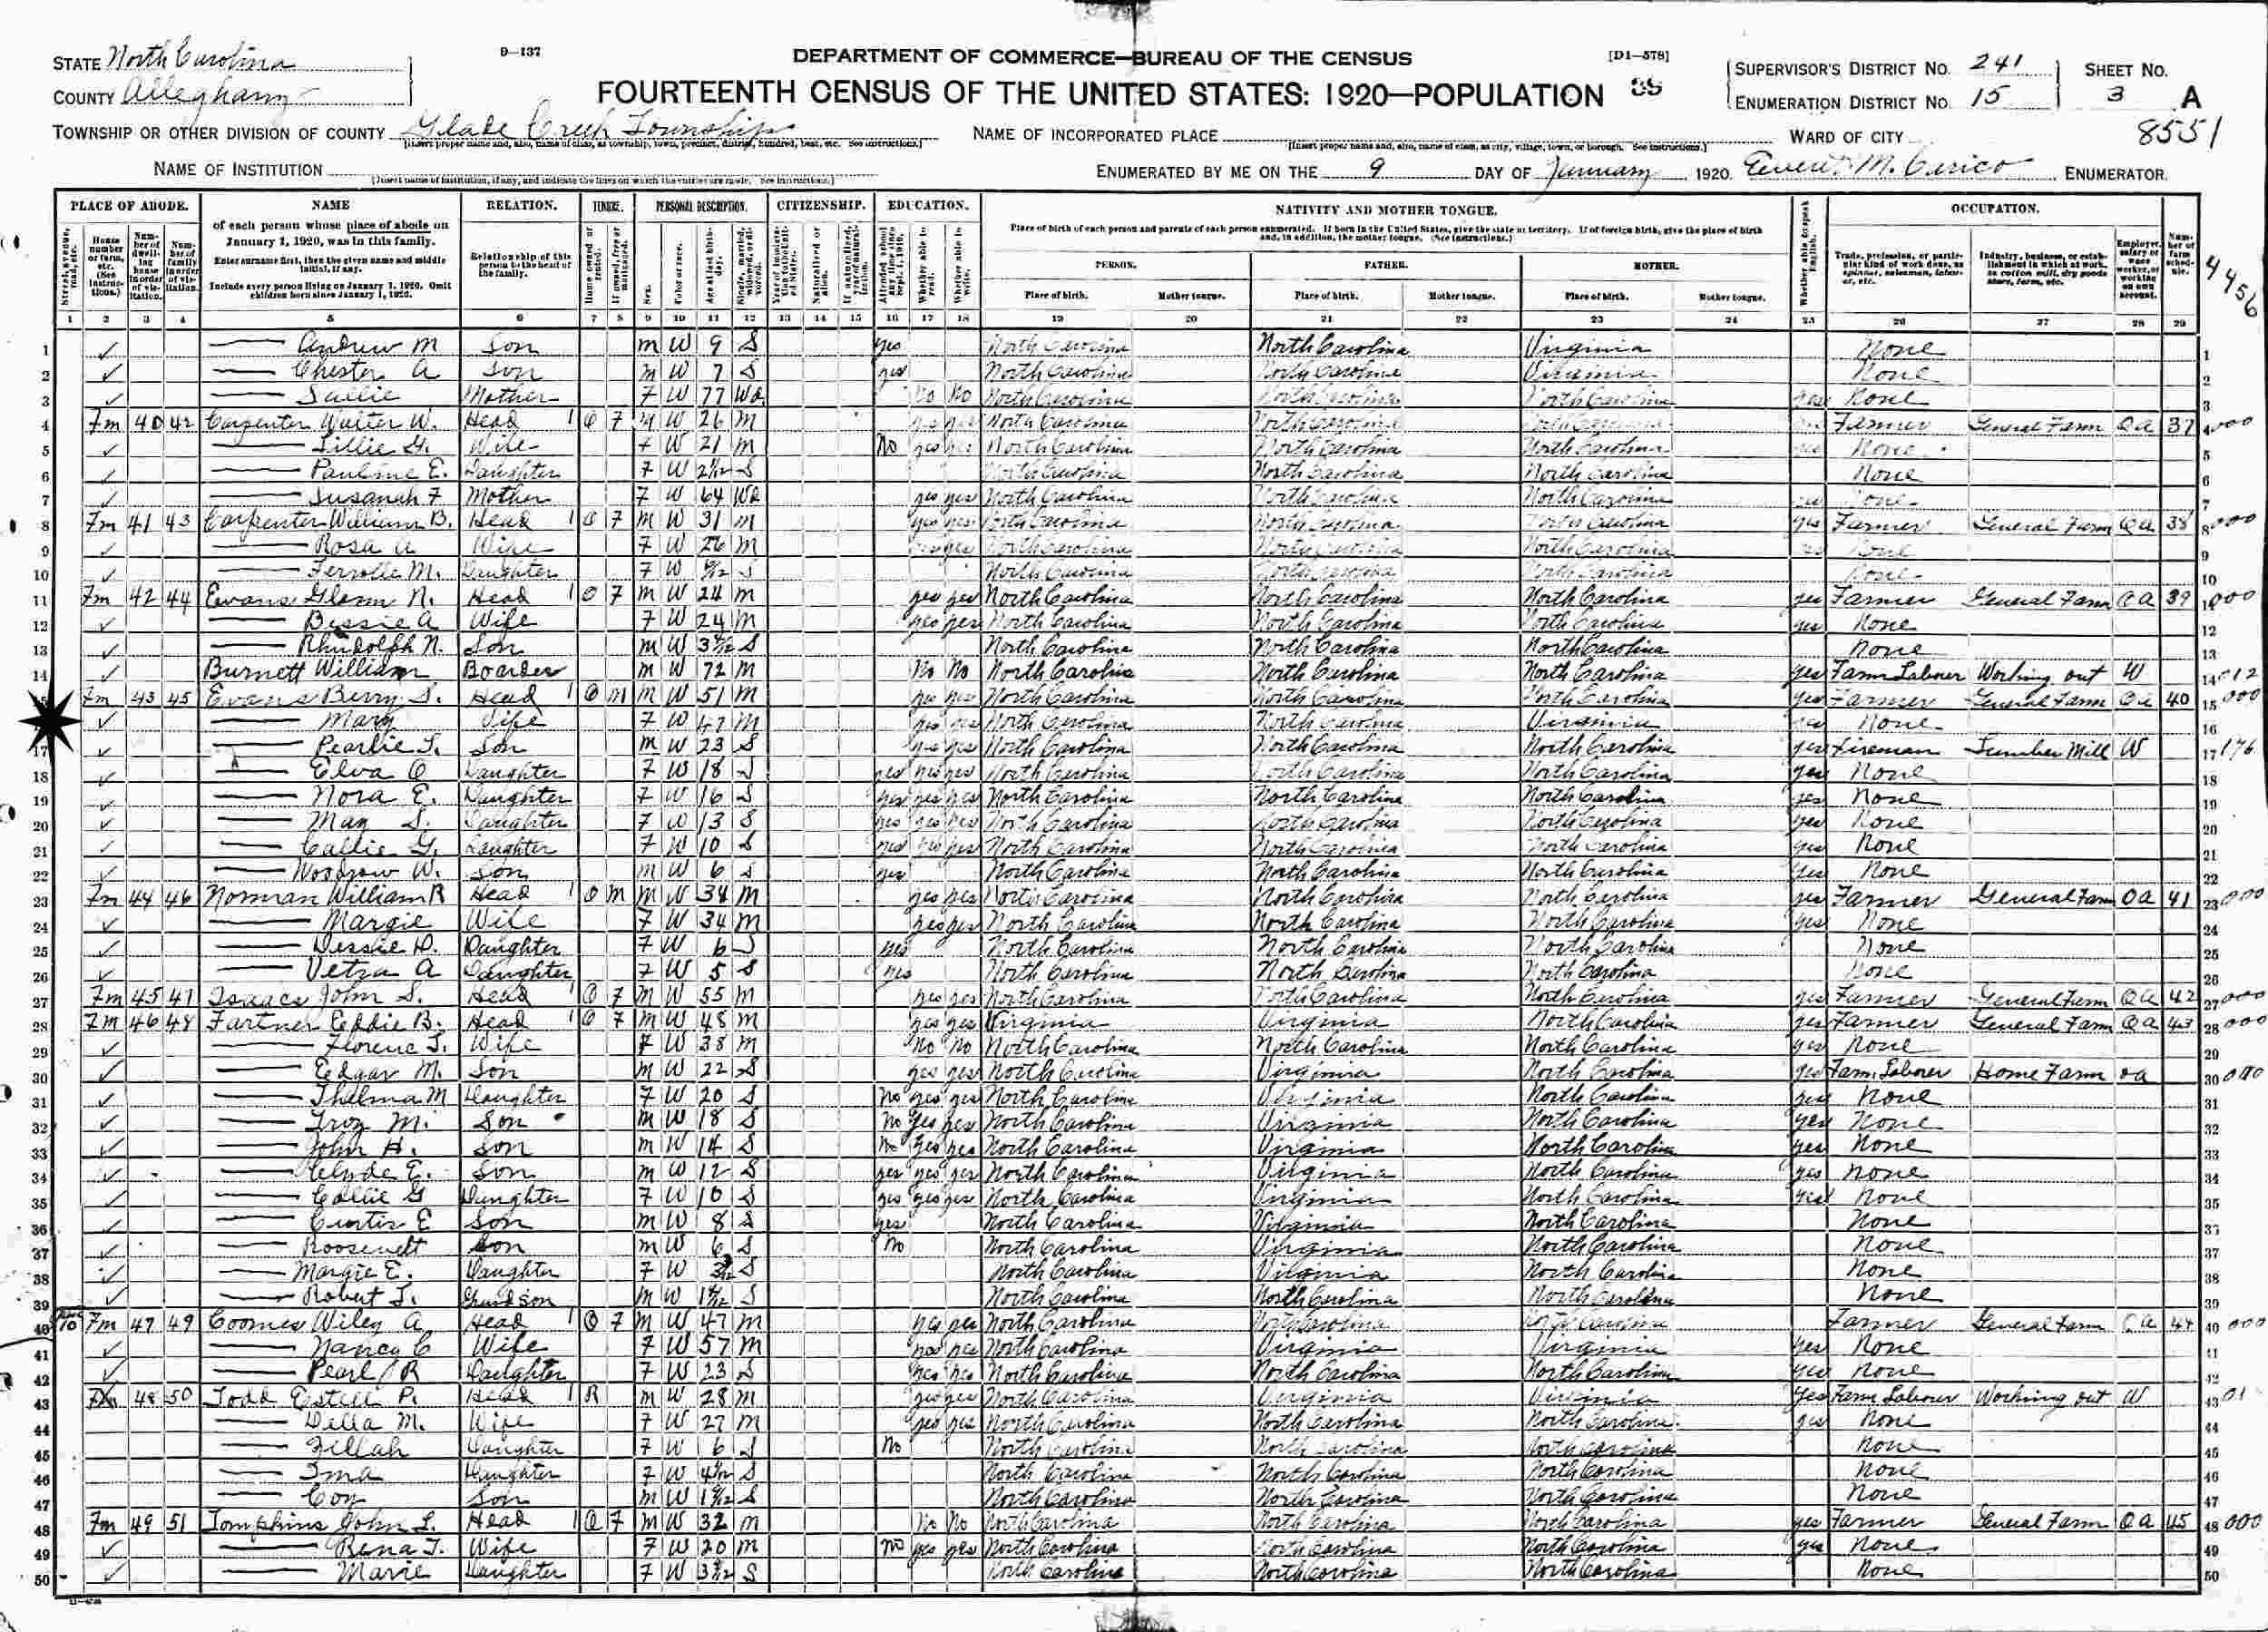 9—137
DEPARTMENT OF COMMERCE—BUREAU OF THE CENSUS
[D1—578]
STATE North Carolina
COUNTY Alleghany
FOURTEENTH CENSUS OF THE UNITED STATES: 1920—POPULATION
SUPERVISOR'S DISTRICT No. 241
ENUMERATION DISTRICT No. 15
SHEET No. 3 A
8551
TOWNSHIP OR OTHER DIVISION OF COUNTY Glade Creek Township
NAME OF INCORPORATED PLACE
WARD OF CITY
NAME OF INSTITUTION
ENUMERATED BY ME ON THE 9 DAY OF January, 1920. M. Carico ENUMERATOR.
4456
PLACE OF ABODE. NAME RELATION. TENURE. PERSONAL DESCRIPTION. CITIZENSHIP. EDUCATION. NATIVITY AND MOTHER TONGUE. OCCUPATION.
of each person whose place of abode on January 1, 1920, was in this family.
Enter surname first, then the given name and middle initial, if any.
Include every person living on January 1, 1920. Omit children born since January 1, 1920.
Relationship of this person to the head of the family.
Place of birth of each person and parents of each person enumerated. If born in the United States, give the state or territory. If of foreign birth, give the place of birth and, in addition, the mother tongue. (See instructions.)
PERSON. FATHER. MOTHER.
Place of birth. Mother tongue. Place of birth. Mother tongue. Place of birth. Mother tongue.
1 2 3 4 5 6 7 8 9 10 11 12 13 14 15 16 17 18 19 20 21 22 23 24 25 26 27 28 29
1 Andrew M Son M W 9 S yes North Carolina North Carolina Virginia None 1
2 Chester A Son M W 7 S yes North Carolina North Carolina Virginia None 2
3 Sallie Mother F W 77 Wd No No North Carolina North Carolina North Carolina yes None 3
4 Fm 40 42 Carpenter Walter W. Head 1 O F M W 26 M yes yes North Carolina North Carolina North Carolina Farmer General Farm OA 37 4 000
5 Lillie G. Wife F W 21 M No yes yes North Carolina North Carolina North Carolina yes None 5
6 Pauline E. Daughter F W S North Carolina North Carolina North Carolina None 6
7 Susanah F Mother F W 64 Wd yes yes North Carolina North Carolina North Carolina None 7
8 Fm 41 43 Carpenter William B. Head 1 O F M W 31 M yes yes North Carolina North Carolina North Carolina yes Farmer General Farm OA 38 8 000
9 Rosa A Wife F W 26 M yes North Carolina North Carolina North Carolina None 9
10 M. Daughter F W S North Carolina North Carolina North Carolina None 10
11 Fm 42 44 Evans Glenn N. Head 1 O F M W 24 M yes yes North Carolina North Carolina North Carolina yes Farmer General Farm OA 39 11 000
12 Bessie A Wife F W 24 M yes yes North Carolina North Carolina North Carolina yes None 12
13 Rhudolph N. Son M W S North Carolina North Carolina North Carolina None 13
14 Burnett William Boarder M W 72 M No No North Carolina North Carolina North Carolina yes Farm Laborer Working out W 14 012
Fm 43 45 Evans Berry S. Head 1 O M M W 51 M yes yes North Carolina North Carolina North Carolina yes Farmer General Farm OA 40 15 000
Mary Wife F W 47 M yes yes North Carolina North Carolina Virginia yes None 16
17 Pearlie T. Son M W 23 S yes yes North Carolina North Carolina North Carolina yes Fireman Lumber Mill W 17 176
18 Elva O Daughter F W 18 S yes yes yes North Carolina North Carolina North Carolina yes None 18
19 Nora E. Daughter F W 16 S yes yes yes North Carolina North Carolina North Carolina yes None 19
20 May S. Daughter F W 13 S yes yes yes North Carolina North Carolina North Carolina yes None 20
21 Callie G. Daughter F W 10 S yes yes yes North Carolina North Carolina North Carolina yes None 21
22 Woodrow W. Son M W 6 S yes North Carolina North Carolina North Carolina yes None 22
23 Fm 44 46 Norman William R Head 1 O M M W 34 M yes yes North Carolina North Carolina North Carolina yes Farmer General Farm OA 41 23 000
24 Margie Wife F W 34 M yes yes North Carolina North Carolina North Carolina yes None 24
25 Dessie D. Daughter F W 6 S yes North Carolina North Carolina North Carolina None 25
26 Vetra A Daughter F W 5 S yes North Carolina North Carolina North Carolina None 26
27 Fm 45 47 Isaacs John S. Head 1 O F M W 55 M yes yes North Carolina North Carolina North Carolina yes Farmer General Farm OA 42 27 000
28 Fm 46 48 Fartner Eddie B. Head 1 O F M W 48 M yes yes Virginia Virginia North Carolina yes Farmer General Farm OA 43 28 000
29 Florence J. Wife F W 38 M No No North Carolina North Carolina North Carolina yes None 29
30 Edgar M. Son M W 22 S yes yes North Carolina Virginia North Carolina yes Farm Laborer Home Farm OA 30 000
31 Thelma M Daughter F W 20 S No yes yes North Carolina Virginia North Carolina yes None 31
32 Troy M. Son M W 18 S No yes yes North Carolina Virginia North Carolina yes None 32
33 John H. Son M W 14 S No yes yes North Carolina Virginia North Carolina yes None 33
34 Clyde E. Son M W 12 S yes yes yes North Carolina Virginia North Carolina yes None 34
35 Callie G Daughter F W 10 S yes yes yes North Carolina Virginia North Carolina yes None 35
36 Curtis E Son M W 8 S yes North Carolina Virginia North Carolina None 36
37 Roosevelt Son M W 6 S No North Carolina Virginia North Carolina None 37
38 Margie E. Daughter F W S North Carolina Virginia North Carolina None 38
39 Robert T. Grandson M W S North Carolina North Carolina North Carolina None 39
40 Fm 47 49 Coomes Wiley A Head 1 O F M W 47 M yes yes North Carolina North Carolina North Carolina Farmer General Farm OA 44 40 000
41 Nancy C Wife F W 57 M yes yes North Carolina Virginia Virginia yes None 41
42 Pearl R Daughter F W 23 S yes yes North Carolina North Carolina North Carolina yes None 42
43 Fm 48 50 Todd Estell P. Head 1 R M W 28 M yes yes North Carolina Virginia Virginia yes Farm Laborer Working out W 43
44 Della M. Wife F W 27 M yes yes North Carolina North Carolina North Carolina yes None 44
45 Zillah Daughter F W 6 S No North Carolina North Carolina North Carolina None 45
46 Ima Daughter F W S North Carolina North Carolina North Carolina None 46
47 Coy Son M W S North Carolina North Carolina North Carolina None 47
48 Fm 49 51 Tompkins John L. Head 1 O F M W 32 M No No North Carolina North Carolina North Carolina yes Farmer General Farm OA 45 48 000
49 Rena T. Wife F W 20 M No yes yes North Carolina North Carolina North Carolina yes None 49
50 Marie Daughter F W S North Carolina North Carolina North Carolina None 50